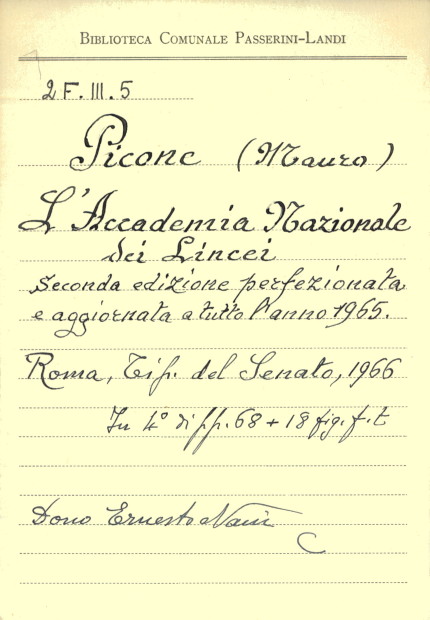 BIBLIOTECA COMUNALE PASSERINI-LANDI
2 F. III. 5
Picone (Mauro)
L'Accademia Nazionale
dei Lincei
Seconda edizione perfezionata
e aggiornata a tutto l'anno 1965.
Roma, Tip. del Senato, 1966
In 4° di pp. 68 + 18 fig. f. t
Dono Ernesto
C